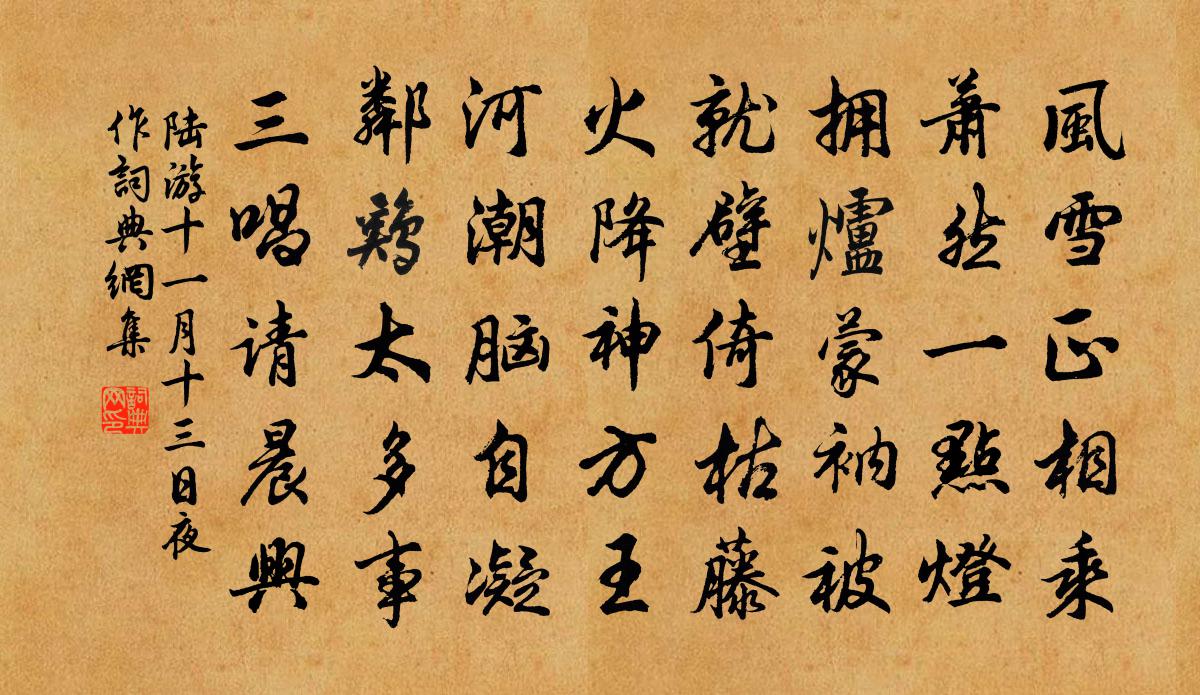 風雪正相乘
蕭然一點燈
拥爐蒙衲被
就壁倚枯藤
火降神方王
河潮脑自凝
鄰鷄太多事
三唱请晨興
陆游十一月十三日夜
作詞典網集
詞典网印